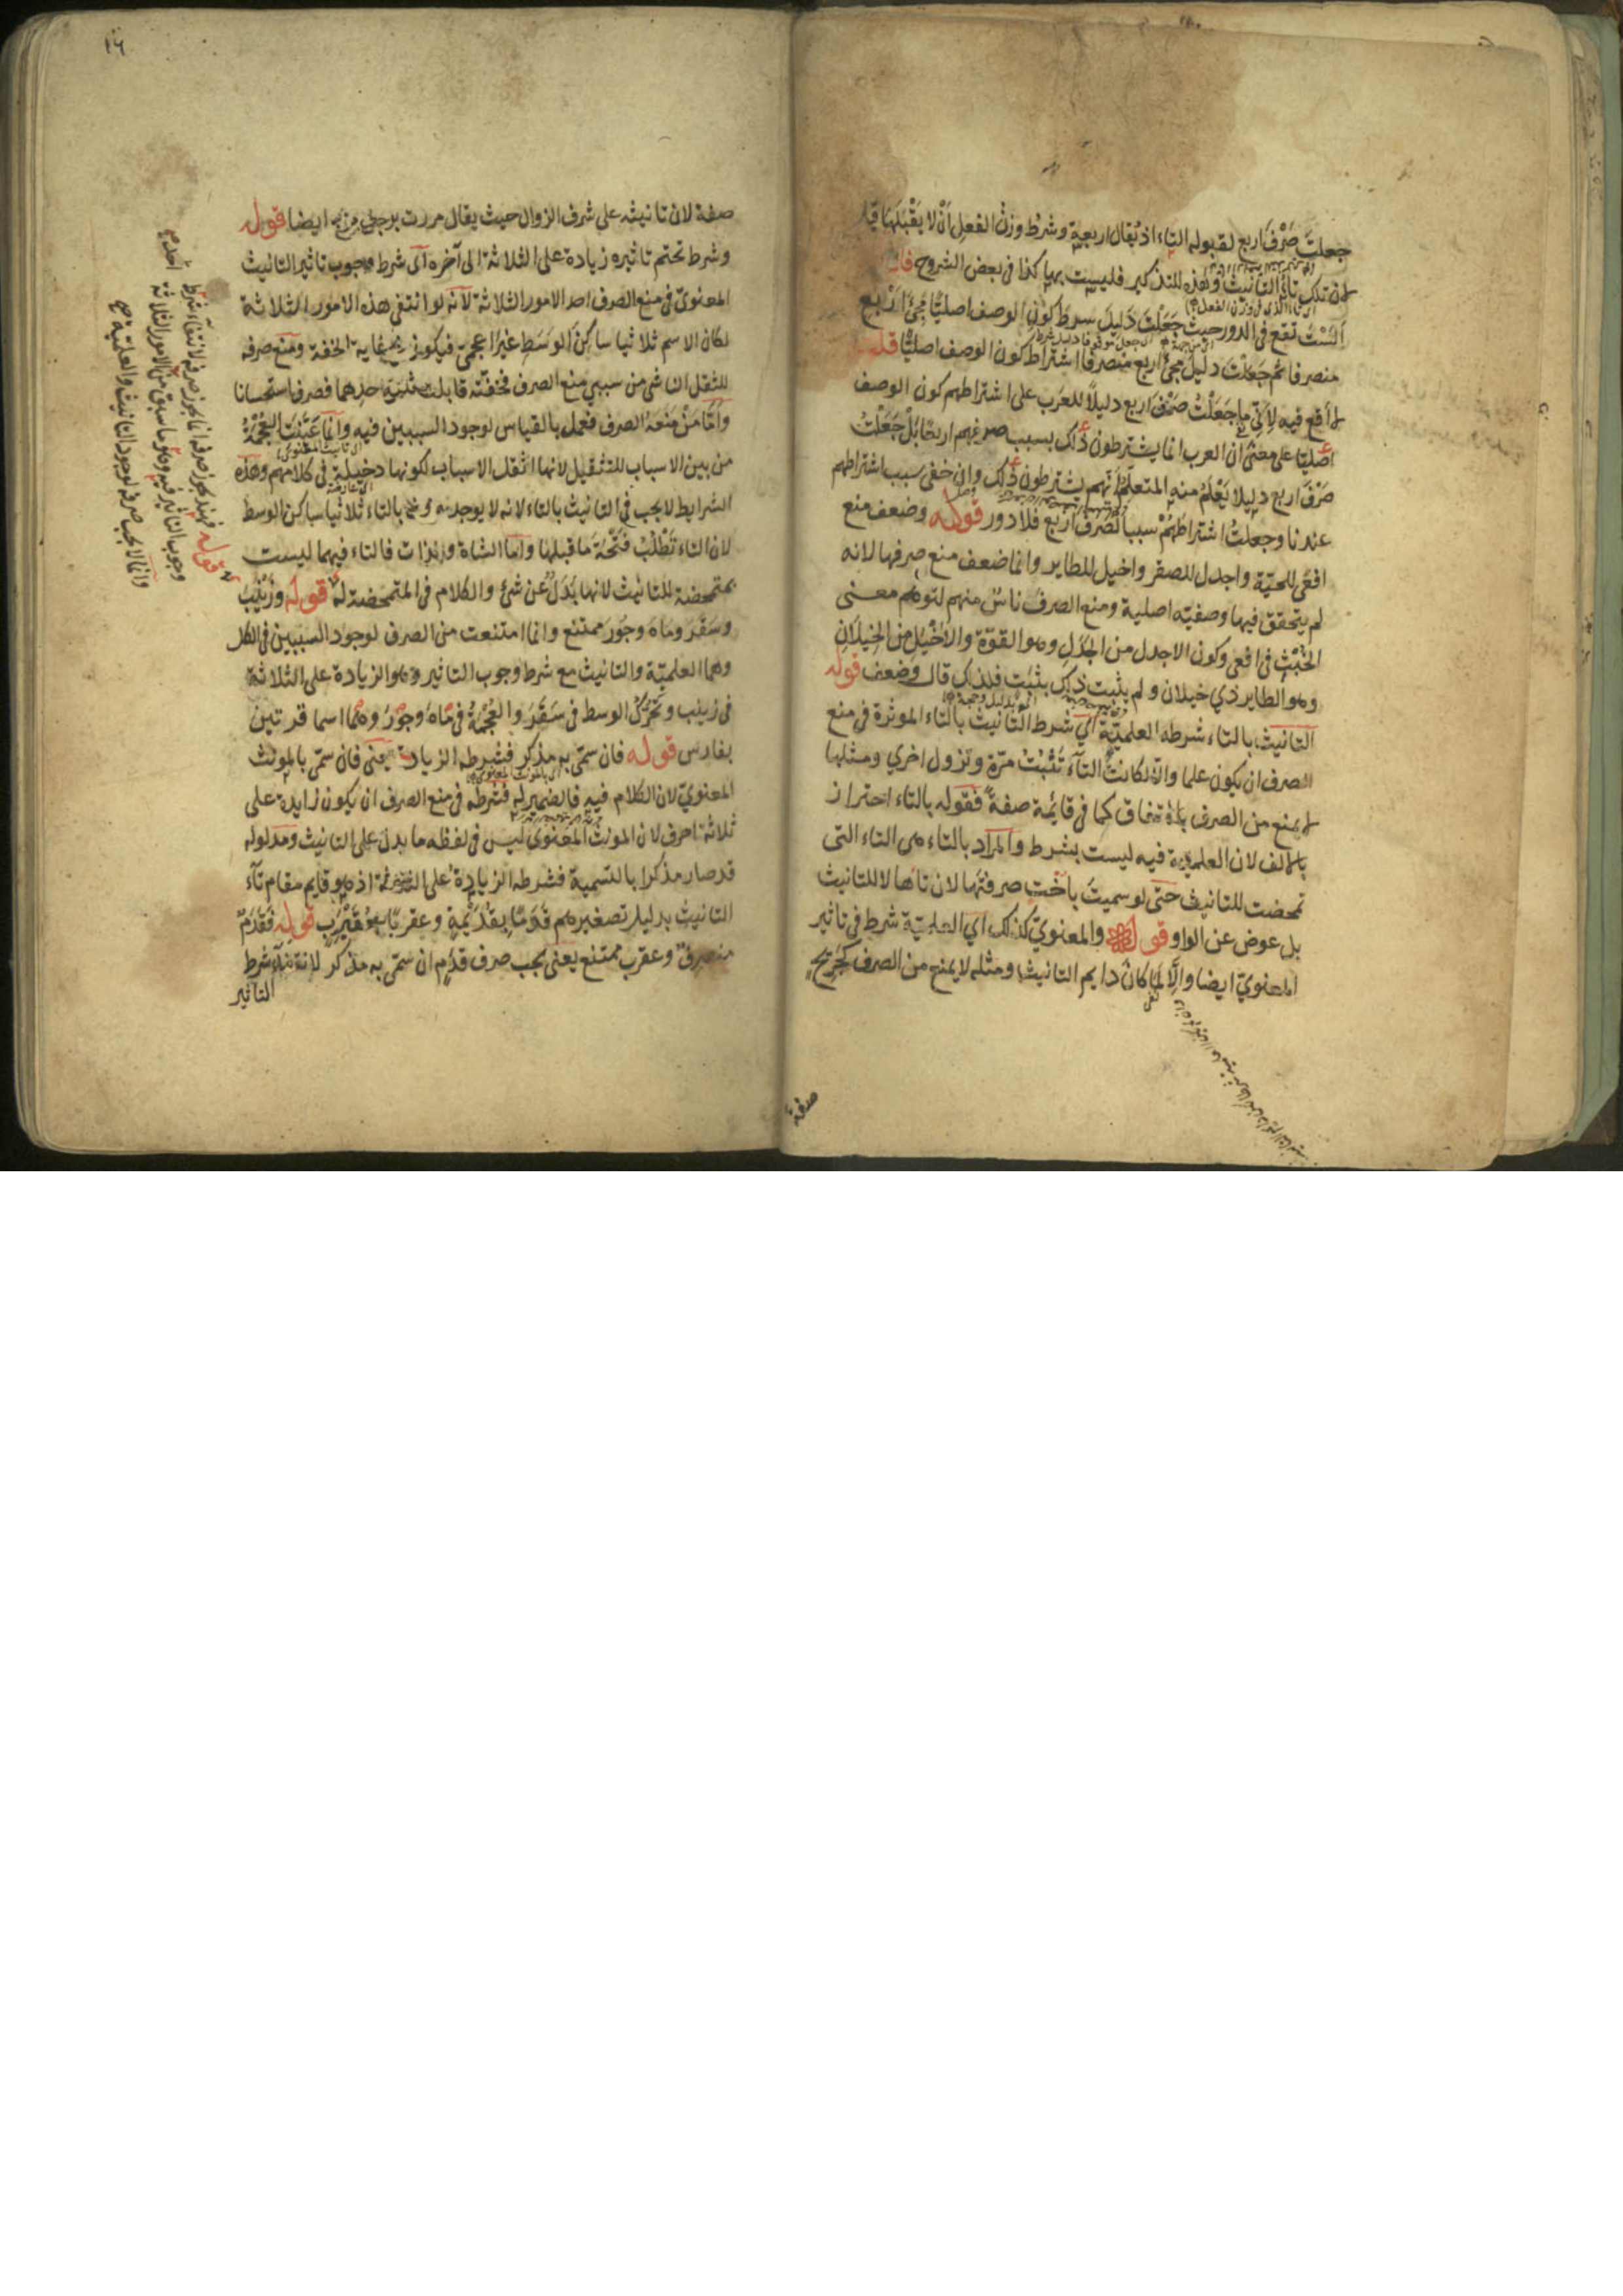 جعلت صرف اربع لقبوله التاء اذ يقال اربعة وشرط وزن الفعل ان لا يقبلها قلت
لان تلك تاء التانيث وهذه للتذكير فليست بها كذا في بعض الشروح فان
الست تقع في الدور حيث جعلت دليل شرط كون الوصف اصليا مجئ اربع
منصرفا ثم جعلت دليل مجئ اربع منصرفا اشتراط كون الوصف اصليا قلت
لا اقع فيه لاني ما جعلت صرف اربع دليلا للعرب على اشتراطهم كون الوصف
اصليا على معنى ان العرب انما يشترطون ذلك بسبب صرفهم اربعا بل جعلت
صرف اربع دليلا يعلم منه المتعلم انهم يشترطون ذلك وان خفى سبب اشتراطهم
عندنا وجعلت اشتراطهم سببا لصرف اربع فلا دور قوله وضعف منع
افعى للحية واجدل للصقر واخيل للطاير وانما ضعف منع صرفها لانه
لم يتحقق فيها وصفيته اصلية ومنع الصرف ناس منهم لتوهم معنى
الخبث في افعى وكون الاجدل من الجدل وهو القوة والاخيل من الخيلان
وهو الطاير ذي خيلان ولم يثبت ذلك بثبت فلذلك قال وضعف قوله
التانيث بالتاء شرطه العلمية اي شرط التانيث بالتاء الموثرة في منع
الصرف ان يكون علما والا لكانت التاء تثبت مرة وتزول اخري ومثلها
لا يمنع من الصرف كما في قايمة صفة فقوله بالتاء احتراز
بالالف لان العلمية فيه ليست بشرط والمراد بالتاء هي التاء التى
تمحضت للتانيث حتى لو سميت باخت صرفتها لان تاها لا للتانيث
بل عوض عن الواو قوله والمعنوي كذلك اي العلمية شرط في تاثير
المعنوي ايضا والا لما كان دايم التانيث ومثله لا يمنع من الصرف كجريح
صفة
١٦
صفة لان تانيثه على شرف الزوال حيث يقال مررت برجل جريح ايضا قوله
وشرط تحتم تاثيره زيادة على الثلاثة الى آخره اى شرط وجوب تاثير التانيث
المعنوى في منع الصرف احد الامور الثلاثة لانه لو انتفى هذه الامور الثلاثة
لكان الاسم ثلاثيا ساكن الوسط غير اعجمى فيكون في غاية الخفة ومنع صرفه
للثقل الناشى من سببي منع الصرف فخفته قابلت احدهما فصرف استحسانا
واما من منعه الصرف فعمل بالقياس لوجود السببين فيه وانما عينت العجمة
من بين الاسباب للتثقيل لانها اثقل الاسباب لكونها دخيلة في كلامهم وهذه
الشرايط لا يجب في التانيث بالتاء لانه لا يوجد بالتاء ثلاثيا ساكن الوسط
لان التاء تطلب فتحة ما قبلها واما الشاة والذات فالتاء فيهما ليست
بمتمحضة للتانيث لانها بدل عن شئ والكلام في المتمحضة له قوله وزينب
وسقر وماه وجور ممتنع وانما امتنعت من الصرف لوجود السببين في الكل
وهما العلمية والتانيث مع شرط وجوب التاثير وهو الزيادة على الثلاثة
في زينب وتحرك الوسط في سقر والعجمة في ماه وجور وهما اسما قريتين
بفارس قوله فان سمى به مذكر فشرطه الزيادة يعنى فان سمى بالمونث
المعنوي لان الكلام فيه فالضمير له فشرطه في منع الصرف ان يكون زايدة على
ثلاثة احرف لان المونث المعنوى ليس في لفظه ما يدل على التانيث ومدلوله
قد صار مذكرا بالتسمية فشرطه الزيادة على الثلاثة اذ هو قايم مقام تآء
التانيث بدليل تصغيرهم قدما بقديمة وعقربا بعقيرب قوله فقدم
منصرف وعقرب ممتنع يعنى يجب صرف قدم ان سمى به مذكر لانه شرط
التاثير
قوله فهند يجوز صرفه انما يجوز صرفه لانتفاء شرط
وجوب التاثير فيه وهو ما سبق من الامور الثلاثة
وانما لا يجب صرفه لوجود التانيث والعلمية صح